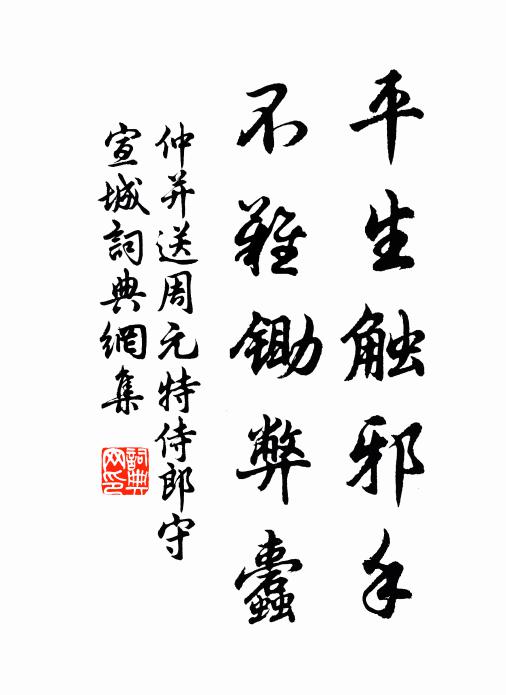 平生触邪手
不难锄弊蠹
仲并送周元特侍郎守
宣城詞典網集
詞典網印